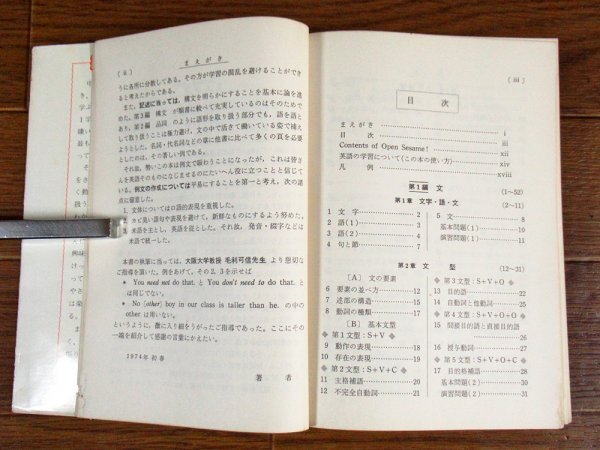 まえがき
( ii )
うに各所に分散してある。その方が学習の混乱を避けることができ
ると考えたからである。
また、記述に当っては、構文を明らかにすることを基本に論を進
めた。第3編 構文 が類書に較べて充実しているのはそのためで
あり、第2編 品詞 のように語形を取り扱う部分でも、語を語と
して取り扱うことは極力避け、文の中で活きて働いている姿で捕え
ようとした。名詞・代名詞などの章に他書に比べて多くの頁を必要
としたのは、その著しい例である。
それ故、勢いこの本は例文で賑わうことになったが、これは皆さ
んを英語そのものになじませるのにたいへん役に立つことと信じて
いる。例文の作成については平易にすることを第一と考え、次の諸
点に留意した。
1. 文体については口語的表現を重視した。
2. カビ臭い語句や表現を避けて、新鮮なものにするよう努めた。
3. 米語を主とし、英語を従とした。それ故、発音・綴字などは
米語で統一した。
本書の執筆に当っては、大阪大学教授 毛利可信先生 より懇切な
ご指導を頂いた。例をあげて、その2, 3を示せば
* You need not do that. と You don't need to do that. と
は同じでない。
* No [other] boy in our class is taller than he. の中の
other は用いない。
というように、微に入り細をうがったご指導であった。ここにその
一端を紹介して感謝の言葉にかえたい。
1974年 初春
著 者
( iii )
目 次
まえがき i
目 次 iii
Contents of Open Sesame! xii
英語の学習について(この本の使い方) xiv
凡 例 xviii
第1編 文 (1~52)
第1章 文字・語・文 (2~11)
1 文 字 2
2 語(1) 3
3 語(2) 4
4 句と節 7
5 文 8
基本問題(1) 10
演習問題(1) 11
第2章 文 型 (12~31)
[A] 文の要素
6 要素の並べ方 12
7 述部の構造 15
8 動詞の種類 17
[B] 基本文型
◆ 第1文型：S+V ◆
9 動作の表現 18
10 存在の表現 19
◆ 第2文型：S+V+C ◆
11 主格補語 21
12 不完全自動詞 21
◆ 第3文型：S+V+O ◆
13 目的語 22
14 自動詞と他動詞 25
15 間接目的語と直接目的語
◆ 第4文型：S+V+O+O ◆
16 授与動詞
◆ 第5文型：S+V+O+C ◆
17 目的格補語 30
基本問題(2) 31
演習問題(2) 31